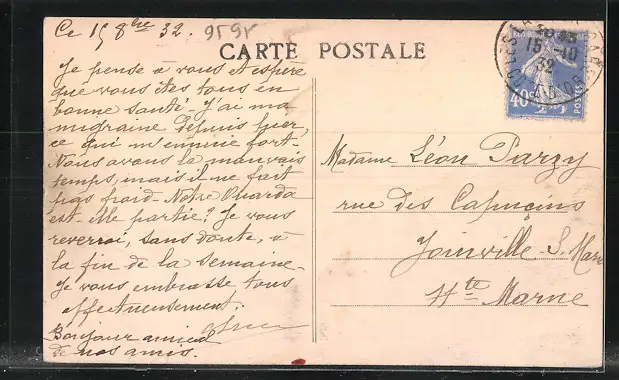 Ce 15 8bre 32.
9595
CARTE POSTALE
Je pense à vous et espère
que vous êtes tous en
bonne santé. J'ai ma
migraine depuis hier,
ce qui m'ennuie fort.
Nous avons le mauvais
temps, mais il ne fait
pas froid. Notre Ouarda
est-elle partie? Je vous
reverrai, sans doute, à
la fin de la semaine.
Je vous embrasse tous
affectueusement.
Bonjour amical
de nos amis.
15 -10
32
40c
POSTES
Madame Léon Parzy
rue des Capucins
Joinville S. Marne
Hte Marne